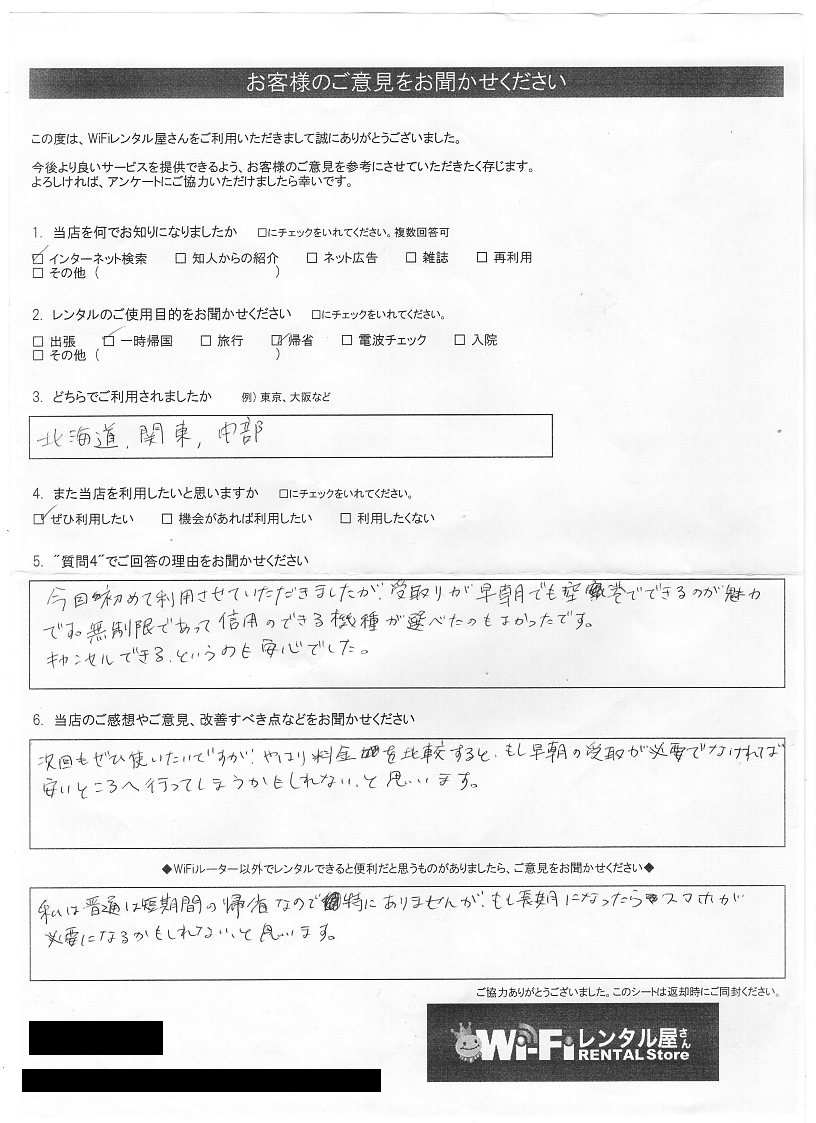 お客様のご意見をお聞かせください
この度は、WiFiレンタル屋さんをご利用いただきまして誠にありがとうございました。
今後より良いサービスを提供できるよう、お客様のご意見を参考にさせていただきたく存じます。
よろしければ、アンケートにご協力いただけましたら幸いです。
1. 当店を何でお知りになりましたか □にチェックをいれてください。複数回答可
☑ インターネット検索 □ 知人からの紹介 □ ネット広告 □ 雑誌 □ 再利用
□ その他 ( )
2. レンタルのご使用目的をお聞かせください □にチェックをいれてください。
□ 出張 ☑ 一時帰国 □ 旅行 ☑ 帰省 □ 電波チェック □ 入院
□ その他 ( )
3. どちらでご利用されましたか 例) 東京、大阪など
北海道、関東、中部
4. また当店を利用したいと思いますか □にチェックをいれてください。
☑ ぜひ利用したい □ 機会があれば利用したい □ 利用したくない
5. "質問4"でご回答の理由をお聞かせください
今回初めて利用させていただきましたが、受取りが早朝でも空港でできるのが魅力
です。無制限であって信用のできる機種が選べたのもよかったです。
キャンセルできる、というのも安心でした。
6. 当店のご感想やご意見、改善すべき点などをお聞かせください
次回もぜひ使いたいですが、やはり料金を比較すると、もし早朝の受取が必要でなければ
安いところへ行ってしまうかもしれない、と思います。
◆WiFiルーター以外でレンタルできると便利だと思うものがありましたら、ご意見をお聞かせください◆
私は普通は短期間の帰省なので特にありませんが、もし長期になったらスマホが
必要になるかもしれない、と思います。
ご協力ありがとうございました。このシートは返却時にご同封ください。
Wi-Fiレンタル屋さん
RENTAL Store